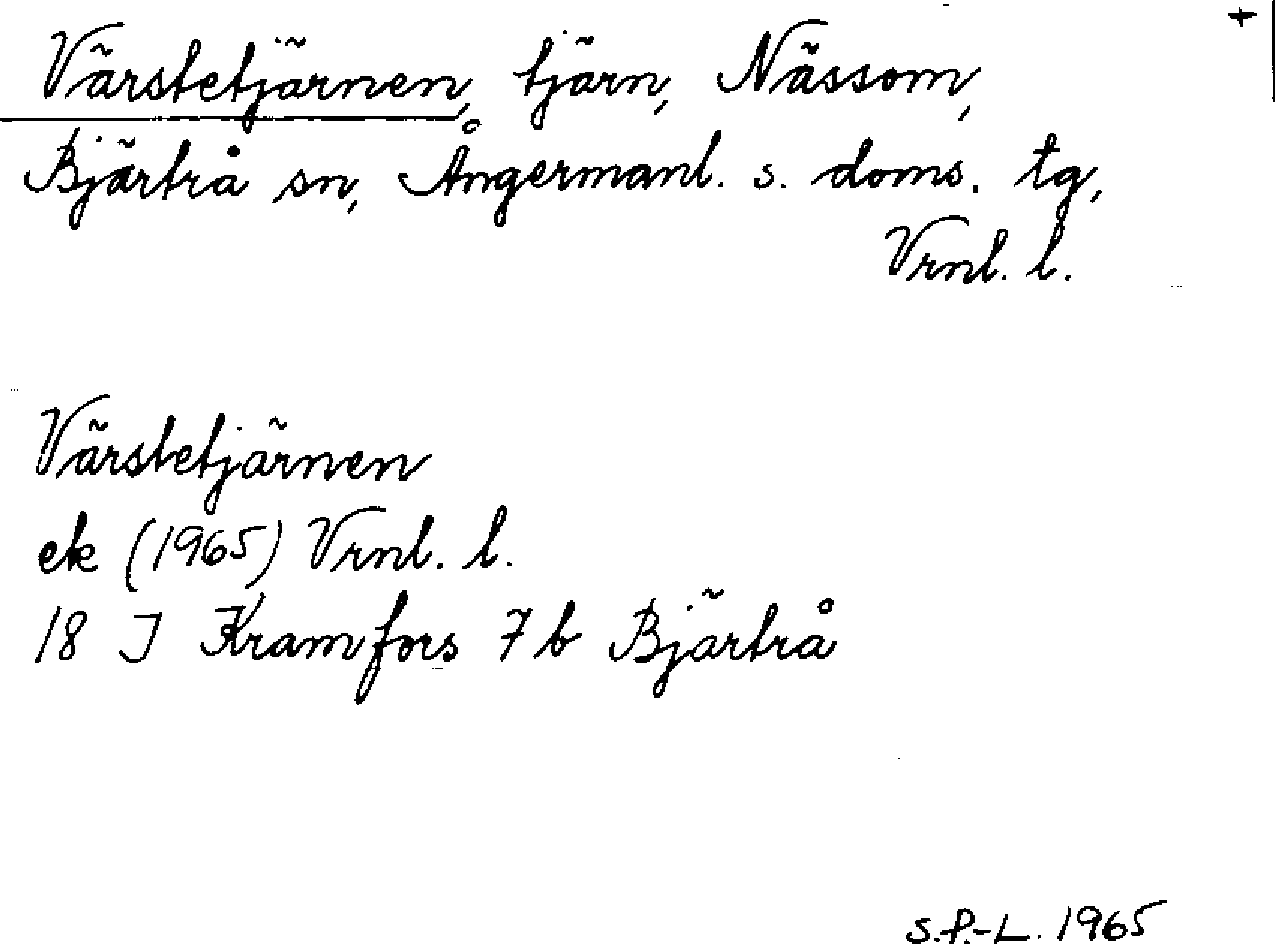 +
Värstetjärnen, tjärn, Nässom,
Bjärtrå sn, Ångermanl. s. doms. tg,
Vrnl. l.
Värstetjärnen
ek (1965) Vrnl. l.
18 J Kramfors 7 b Bjärtrå
S.P.-L. 1965